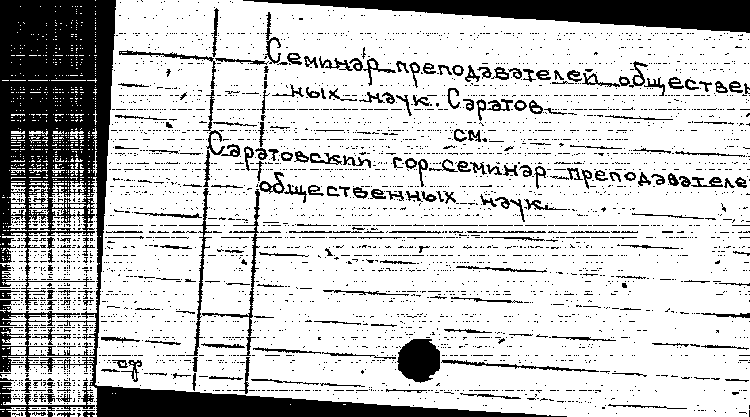 Семинар преподавателей обществен
ных наук. Саратов.
см.
Саратовский гор. семинар преподавателе
общественных наук.
ор